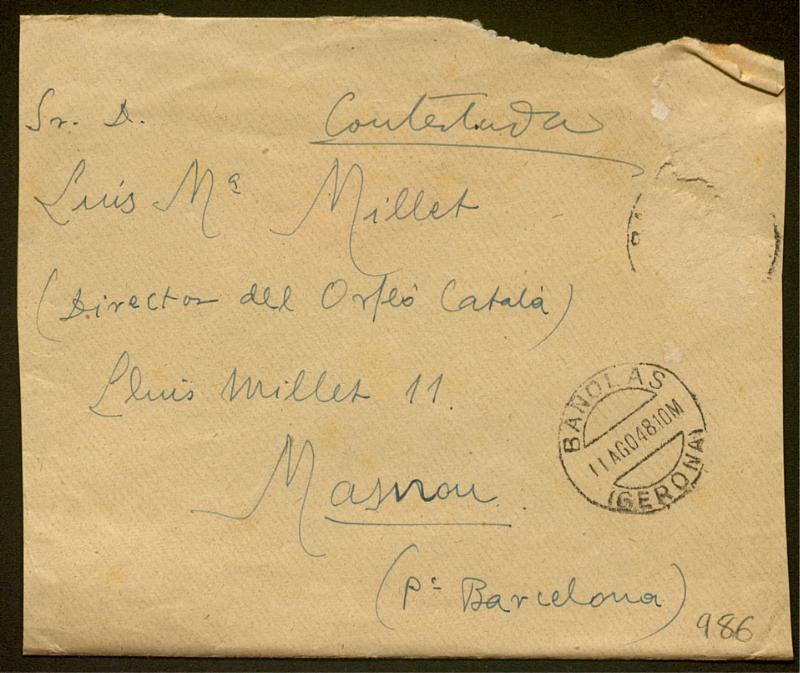 Contestada
Sr. D.
Luis Mª Millet
(Director del Orfeó Català)
Lluis Millet 11.
Masnou.
(Pª Barcelona)
BAÑOLAS
11 AGO 48 10M
(GERONA)
986